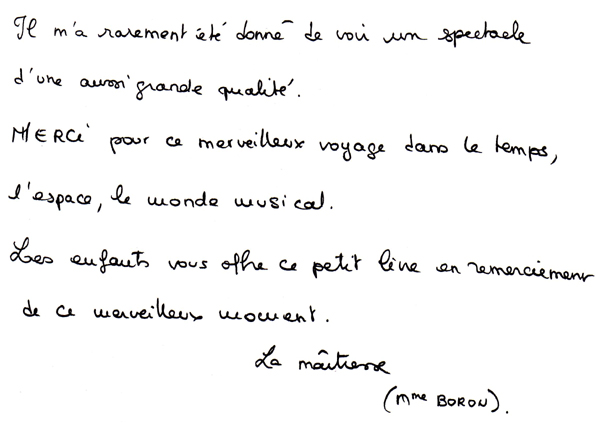 Il m'a rarement été donné de voir un spectacle
d'une aussi grande qualité.
MERCi pour ce merveilleux voyage dans le temps,
l'espace, le monde musical.
Les enfants vous offre ce petit livre en remerciement
de ce merveilleux moment.
La maîtresse
(Mme BORON).